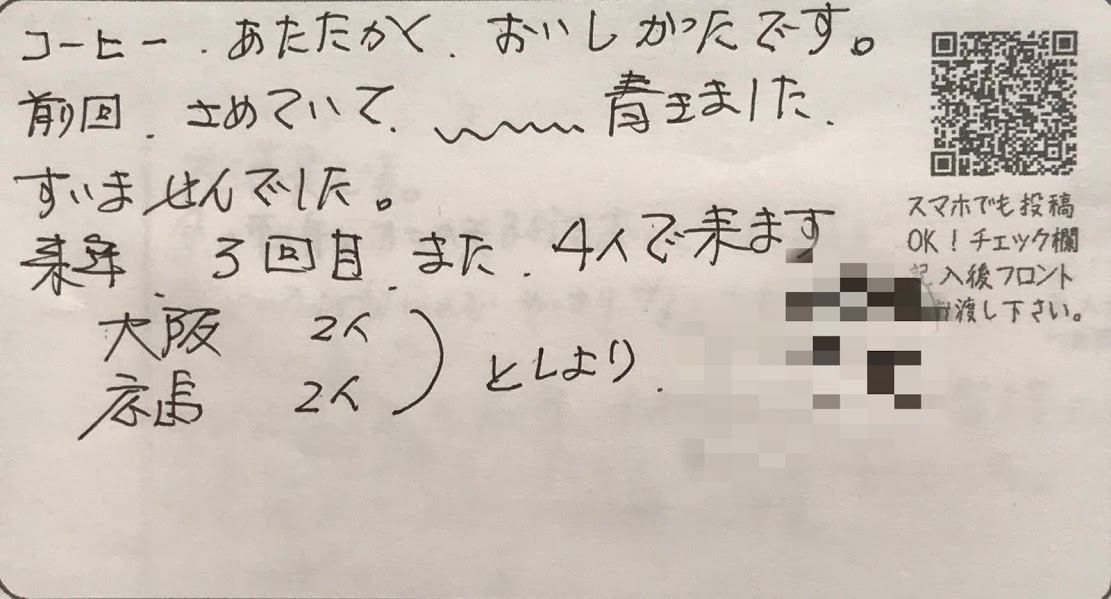 コーヒー、あたたかく、おいしかったです。
前回、さめていて、〰〰青きました、
すいませんでした。
来年、3回目、また、4人で来ます
大阪 2人
広島 2人
としより、
スマホでも投稿
OK！チェック欄
記入後フロント
お渡し下さい。